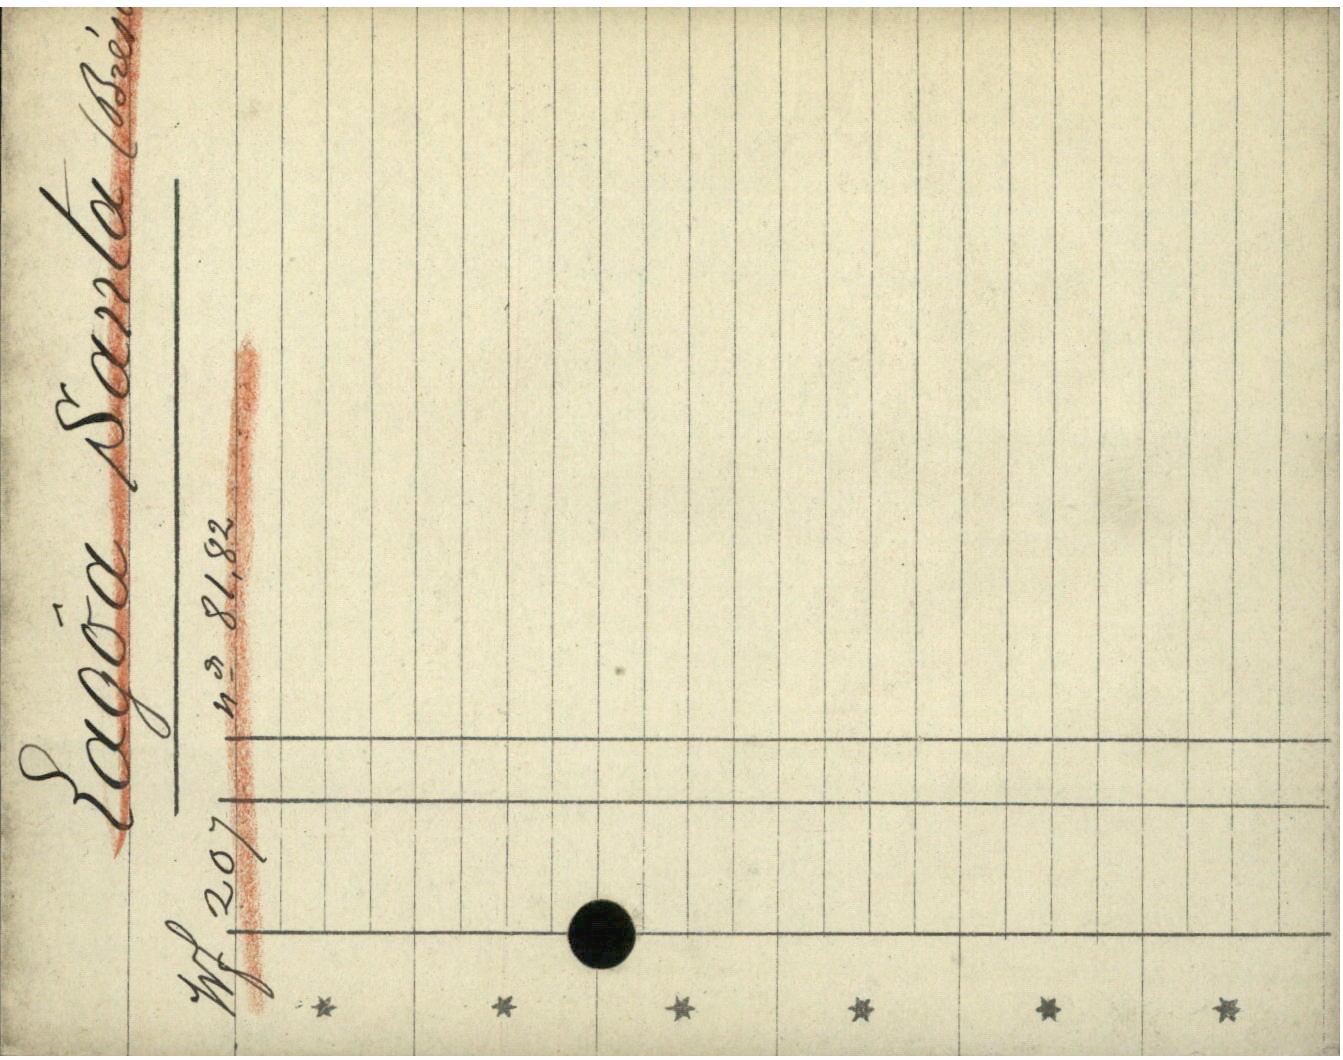 Lagôa Santa (Brés
Wf 207 nos 81,82